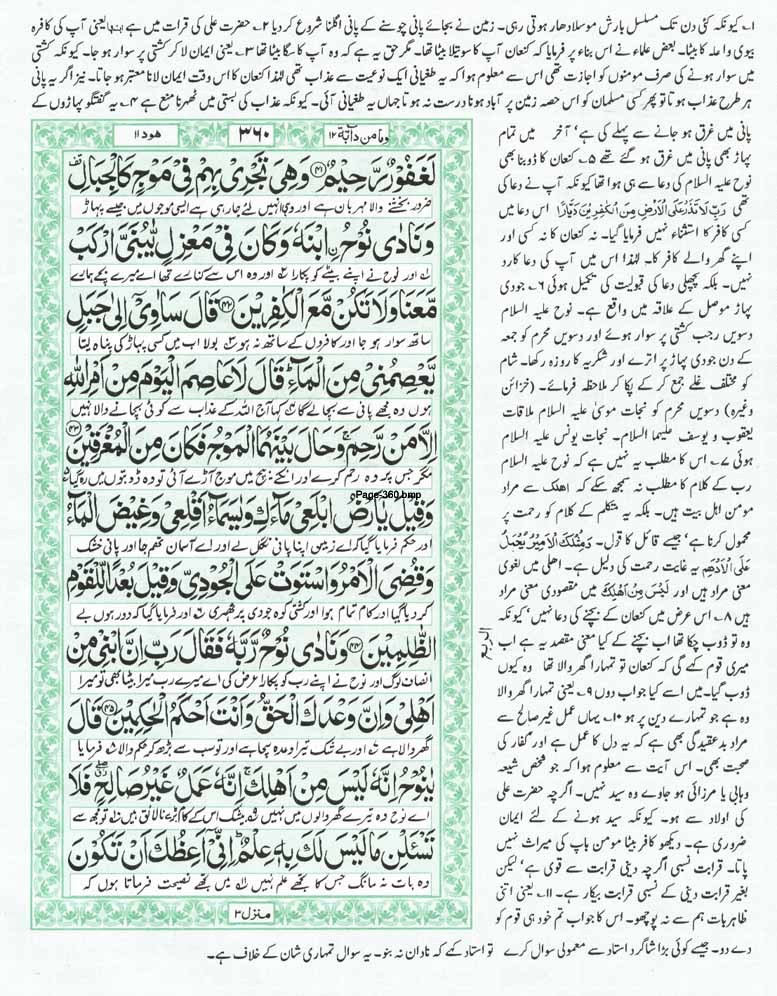 ۱؎ کیونکہ کئی دن تک مسلسل بارش موسلا دھار ہوتی رہی۔ زمین نے بجائے پانی چوسنے کے پانی اگلنا شروع کر دیا ۲؎ حضرت علی کی قرات میں ہے ابنھا یعنی آپ کی کافرہ
بیوی واعلہ کا بیٹا۔ بعض علماء نے اس بناء پر فرمایا کہ کنعان آپ کا سوتیلا بیٹا تھا۔ مگر حق یہ ہے کہ وہ آپ کا سگا بیٹا تھا ۳؎ یعنی ایمان لا کر کشتی پر سوار ہو جا۔ کیونکہ کشتی
میں سوار ہونے کی صرف مومنوں کو اجازت تھی اس سے معلوم ہوا کہ یہ طغیانی ایک نوعیت سے عذاب تھی لہٰذا کنعان کا اس وقت ایمان لانا معتبر ہو جاتا۔ نیز اگر یہ پانی
ہر طرح عذاب ہوتا تو پھر کسی مسلمان کو اس حصہ زمین پر آباد ہونا درست نہ ہوتا جہاں یہ طغیانی آئی۔ کیونکہ عذاب کی بستی میں ٹھہرنا منع ہے ۴؎ یہ گفتگو پہاڑوں کے
پانی میں غرق ہو جانے سے پہلے کی ہے' آخر میں تمام
پہاڑ بھی پانی میں غرق ہو گئے تھے ۵؎ کنعان کا ڈوبنا بھی
نوح علیہ السلام کی دعا سے ہی ہوا تھا کیونکہ آپ نے دعا کی
تھی رَبِّ لَا تَذَرْ عَلَی الْاَرْضِ مِنَ الْکٰفِرِیْنَ دَیَّارًا اس دعا میں
کسی کافر کا استثناء نہیں فرمایا گیا۔ نہ کنعان کا نہ کسی اور
اپنے گھر والے کافر کا۔ لہٰذا اس میں آپ کی دعا کا رد
نہیں۔ بلکہ پچھلی دعا کی قبولیت کی تکمیل ہوئی ۶؎ جودی
پہاڑ موصل کے علاقہ میں واقع ہے۔ نوح علیہ السلام
دسویں رجب کشتی پر سوار ہوئے اور دسویں محرم کو جمعہ
کے دن جودی پہاڑ پر اترے اور شکریہ کا روزہ رکھا۔ شام
کو مختلف غلے جمع کر کے پکا کر ملاحظہ فرمائے۔ (خزائن
وغیرہ) دسویں محرم کو نجات موسیٰ علیہ السلام ملاقات
یعقوب و یوسف علیہما السلام۔ نجات یونس علیہ السلام
ہوئی ۷؎ اس کا مطلب یہ نہیں ہے کہ نوح علیہ السلام
رب کے کلام کا مطلب نہ سمجھ سکے کہ اھلک سے مراد
مومن اہل بیت ہیں۔ بلکہ یہ متکلم کے کلام کو رحمت پر
محمول کرنا ہے' جیسے قائل کا قول۔ وَمِثْلُکَ الْاَمِیْرُ یَحْمِلُ
عَلَی الْاَدْھَمِ یہ غایت رحمت کی دلیل ہے۔ اھلی میں لغوی
معنی مراد ہیں اور لَیْسَ مِنْ اَھْلِکَ میں مقصودی معنی مراد
ہیں ۸؎ اس عرض میں کنعان کے بچنے کی دعا نہیں' کیونکہ
وہ تو ڈوب چکا تھا اب بچنے کے کیا معنی مقصد یہ ہے اب
میری قوم کہے گی کہ کنعان تو تمہارا گھر والا تھا وہ کیوں
ڈوب گیا۔ میں اسے کیا جواب دوں ۹؎ یعنی تمہارا گھر والا
وہ ہے جو تمہارے دین پر ہو ۱۰؎ یہاں عمل غیر صالح سے
مراد بدعقیدگی بھی ہے کہ یہ دل کا عمل ہے اور کفار کی
صحبت بھی۔ اس آیت سے معلوم ہوا کہ جو شخص شیعہ
وہابی یا مرزائی ہو جاوے وہ سید نہیں۔ اگرچہ حضرت علی
کی اولاد سے ہو۔ کیونکہ سید ہونے کے لئے ایمان
ضروری ہے۔ دیکھو کافر بیٹا مومن باپ کی میراث نہیں
پاتا۔ قرابت نسبی اگرچہ دینی قرابت سے قوی ہے' لیکن
بغیر قرابت دینی کے نسبی قرابت بیکار ہے۔ ۱۱؎ یعنی اتنی
ظاہر بات ہم سے نہ پوچھو۔ اس کا جواب تم خود ہی قوم کو
دے دو۔ جیسے کوئی بڑا شاگرد استاد سے معمولی سوال کرے تو استاد کہے کہ نادان نہ بنو۔ یہ سوال تمہاری شان کے خلاف ہے۔
وما من دآبۃ ۱۲ ۳۶۰ ھود ۱۱
لَغَفُوْرٌ رَّحِيْمٌ ﴿۴۱﴾ وَهِىَ تَجْرِىْ بِهِمْ فِىْ مَوْجٍ كَالْجِبَالِ
ضرور بخشنے والا مہربان ہے اور وہی انہیں لئے جا رہی ہے ایسی موجوں میں جیسے پہاڑ
وَ نَادٰى نُوْحُ ۨابْنَهٗ وَ كَانَ فِىْ مَعْزِلٍ يّٰبُنَىَّ ارْكَبْ
اور نوح نے اپنے بیٹے کو پکارا اور وہ اس سے کنارے تھا اے میرے بچے ہمارے
مَّعَنَا وَ لَا تَكُنْ مَّعَ الْكٰفِرِيْنَ ﴿۴۲﴾ قَالَ سَاٰوِىْۤ اِلٰى جَبَلٍ
ساتھ سوار ہو جا اور کافروں کے ساتھ نہ ہو بولا اب میں کسی پہاڑ کی پناہ لیتا
يَّعْصِمُنِىْ مِنَ الْمَآءِ ؕ قَالَ لَا عَاصِمَ الْيَوْمَ مِنْ اَمْرِ اللّٰهِ
ہوں وہ مجھے پانی سے بچا لے گا کہا آج اللہ کے عذاب سے کوئی بچانے والا نہیں
اِلَّا مَنْ رَّحِمَ ۚ وَ حَالَ بَيْنَهُمَا الْمَوْجُ فَكَانَ مِنَ الْمُغْرَقِيْنَ ﴿۴۳﴾
مگر جس پر وہ رحم کرے اور انکے بیچ میں موج آڑے آئی تو وہ ڈوبتوں میں رہ گیا
Page-360.bmp
وَ قِيْلَ يٰۤاَرْضُ ابْلَعِىْ مَآءَكِ وَ يٰسَمَآءُ اَقْلِعِىْ وَ غِيْضَ الْمَآءُ
اور حکم فرمایا گیا کہ اے زمین اپنا پانی نگل لے اور اے آسمان تھم جا اور پانی خشک
وَ قُضِىَ الْاَمْرُ وَ اسْتَوَتْ عَلَى الْجُوْدِىِّ وَ قِيْلَ بُعْدًا لِّلْقَوْمِ
کر دیا گیا اور کام تمام ہوا اور کشتی کوہ جودی پر ٹھہری اور فرمایا گیا کہ دور ہوں بے
الظّٰلِمِيْنَ ﴿۴۴﴾ وَ نَادٰى نُوْحٌ رَّبَّهٗ فَقَالَ رَبِّ اِنَّ ابْنِىْ مِنْ
انصاف لوگ اور نوح نے اپنے رب کو پکارا عرض کی اے میرے رب میرا بیٹا بھی تو میرا
اَهْلِىْ وَ اِنَّ وَعْدَكَ الْحَقُّ وَ اَنْتَ اَحْكَمُ الْحٰكِمِيْنَ ﴿۴۵﴾ قَالَ
گھر والا ہے اور بے شک تیرا وعدہ سچا ہے اور تو سب سے بڑھ کر حکم والا فرمایا
يٰنُوْحُ اِنَّهٗ لَيْسَ مِنْ اَهْلِكَ ۚ اِنَّهٗ عَمَلٌ غَيْرُ صَالِحٍ ۖ فَلَا
اے نوح وہ تیرے گھر والوں میں نہیں بیشک اس کے کام بڑے نالائق ہیں تو مجھ سے
تَسْـَٔلْنِ مَا لَيْسَ لَكَ بِهٖ عِلْمٌ ؕ اِنِّىْۤ اَعِظُكَ اَنْ تَكُوْنَ
وہ بات نہ مانگ جس کا تجھے علم نہیں میں تجھے نصیحت فرماتا ہوں کہ
منزل ۳